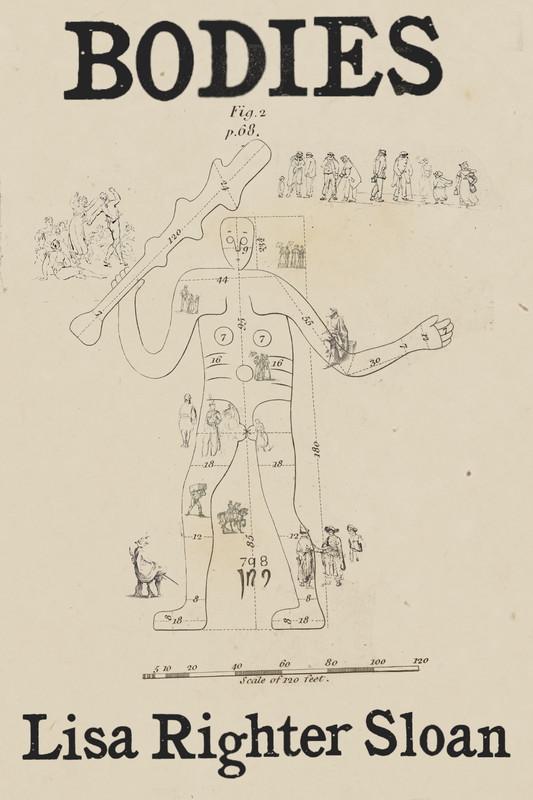 BODIES
Fig. 2
p.68.
120
44
95
55
7
7
16
16
30
7
12
180
18
18
12
12
85
798
8
8
8 18
8 18
5 10 20 40 60 80 100 120
Scale of 120 feet.
Lisa Righter Sloan